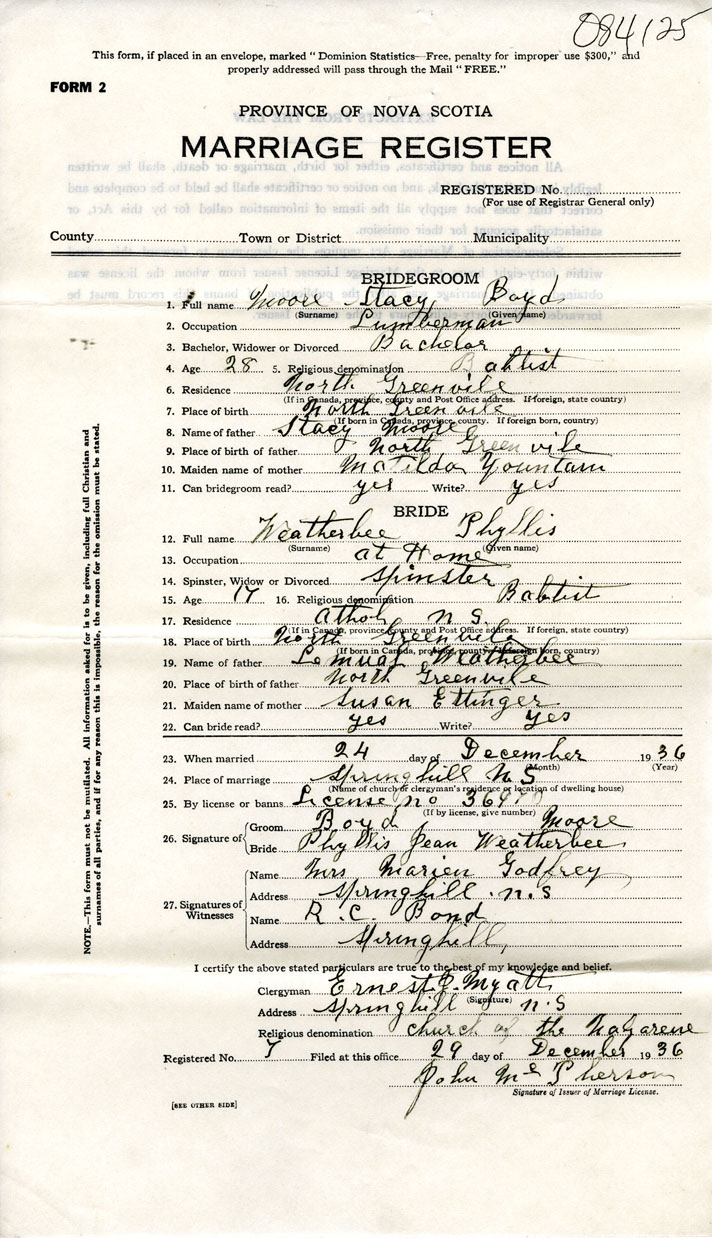 084125
This form, if placed in an envelope, marked "Dominion Statistics—Free, penalty for improper use $300," and
properly addressed will pass through the Mail "FREE."
FORM 2
PROVINCE OF NOVA SCOTIA
MARRIAGE REGISTER
REGISTERED No.
(For use of Registrar General only)
County Town or District Municipality
BRIDEGROOM
1. Full name Moore Stacy Boyd
(Surname) (Given name)
2. Occupation Lumberman
3. Bachelor, Widower or Divorced Bachelor
4. Age 28 5. Religious denomination Babtist
6. Residence North Greenville
(If in Canada, province, county and Post Office address. If foreign, state country)
7. Place of birth North Greenville
(If born in Canada, province, county. If foreign born, country)
8. Name of father Stacy Moore
9. Place of birth of father North Greenville
10. Maiden name of mother Matilda Yountain
11. Can bridegroom read? yes Write? yes
BRIDE
12. Full name Weatherbee Phyllis
(Surname) (Given name)
13. Occupation at Home
14. Spinster, Widow or Divorced Spinster
15. Age 17 16. Religious denomination Babtist
17. Residence athol n s.
(If in Canada, province, county and Post Office address. If foreign, state country)
18. Place of birth North Greenville
(If born in Canada, province, county. If foreign born, country)
19. Name of father Lemual Weatherbee
20. Place of birth of father North Greenville
21. Maiden name of mother Susan Ettinger
22. Can bride read? yes Write? yes
23. When married 24 day of December 1936
(Month) (Year)
24. Place of marriage Springhill N S
(Name of church or clergyman's residence or location of dwelling house)
25. By license or banns License no
(If by license, give number)
26. Signature of Groom Boyd Moore
Bride Phyllis Jean Weatherbee
27. Signatures of Witnesses Name Mrs Marien Godfrey
Address Springhill n.s
Name R. C. Bond
Address Springhill,
I certify the above stated particulars are true to the best of my knowledge and belief.
Clergyman Ernest E. Myatt
(Signature)
Address Springhill n.s
Religious denomination church of the Nazarene
Registered No. 7 Filed at this office 29 day of December 1936
John McPherson
Signature of Issuer of Marriage License.
[SEE OTHER SIDE]
NOTE.—This form must not be mutilated. All information asked for is to be given, including full Christian and
surnames of all parties, and if for any reason this is impossible, the reason for the omission must be stated.